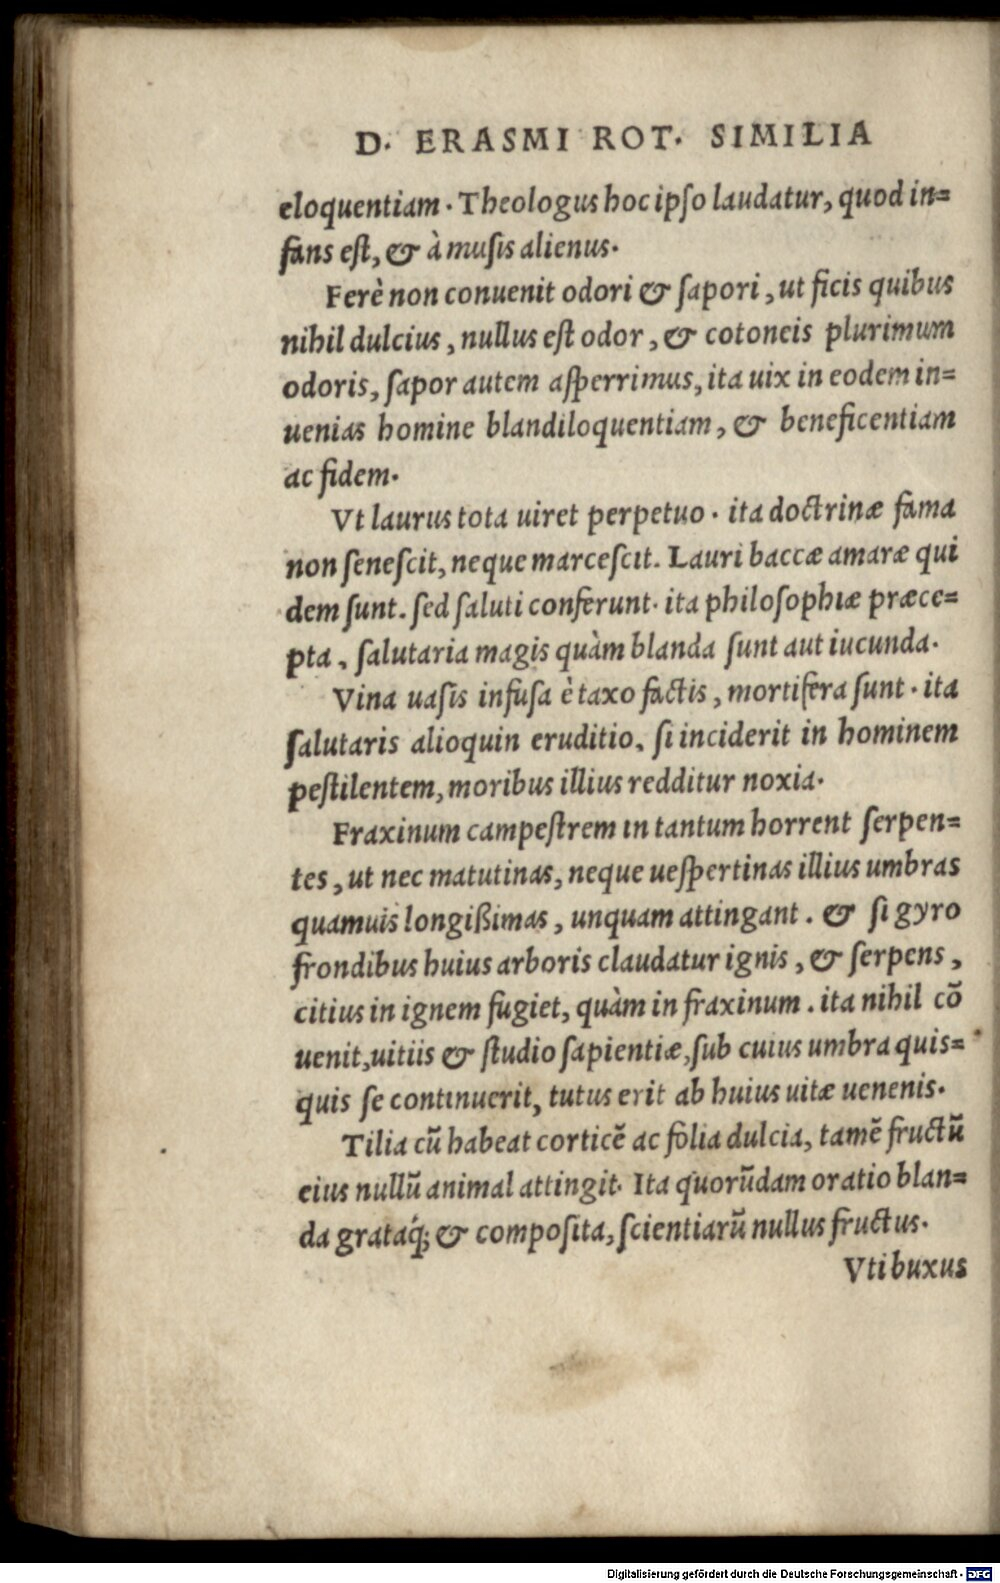 D. ERASMI ROT. SIMILIA
eloquentiam. Theologus hoc ipſo laudatur, quod in=
fans eſt, & à muſis alienus.
Ferè non conuenit odori & ſapori, ut ficis quibus
nihil dulcius, nullus eſt odor, & cotoneis plurimum
odoris, ſapor autem aſperrimus, ita uix in eodem in=
uenias homine blandiloquentiam, & beneficentiam
ac fidem.
Vt laurus tota uiret perpetuo. ita doctrinæ fama
non ſeneſcit, neque marceſcit. Lauri baccæ amaræ qui
dem ſunt. ſed ſaluti conferunt. ita philoſophiæ præce=
pta, ſalutaria magis quàm blanda ſunt aut iucunda.
Vina uaſis infuſa è taxo factis, mortifera ſunt. ita
ſalutaris alioquin eruditio, ſi inciderit in hominem
peſtilentem, moribus illius redditur noxia.
Fraxinum campeſtrem in tantum horrent ſerpen=
tes, ut nec matutinas, neque ueſpertinas illius umbras
quamuis longißimas, unquam attingant. & ſi gyro
frondibus huius arboris claudatur ignis, & ſerpens,
citius in ignem fugiet, quàm in fraxinum. ita nihil cõ
uenit, uitiis & ſtudio ſapientiæ, ſub cuius umbra quis=
quis ſe continuerit, tutus erit ab huius uitæ uenenis.
Tilia cũ habeat corticẽ ac folia dulcia, tamẽ fructũ
eius nullũ animal attingit. Ita quorũdam oratio blan=
da grataq́; & compoſita, ſcientiarũ nullus fructus.
Vti buxus
Digitalisierung gefördert durch die Deutsche Forschungsgemeinschaft - DFG